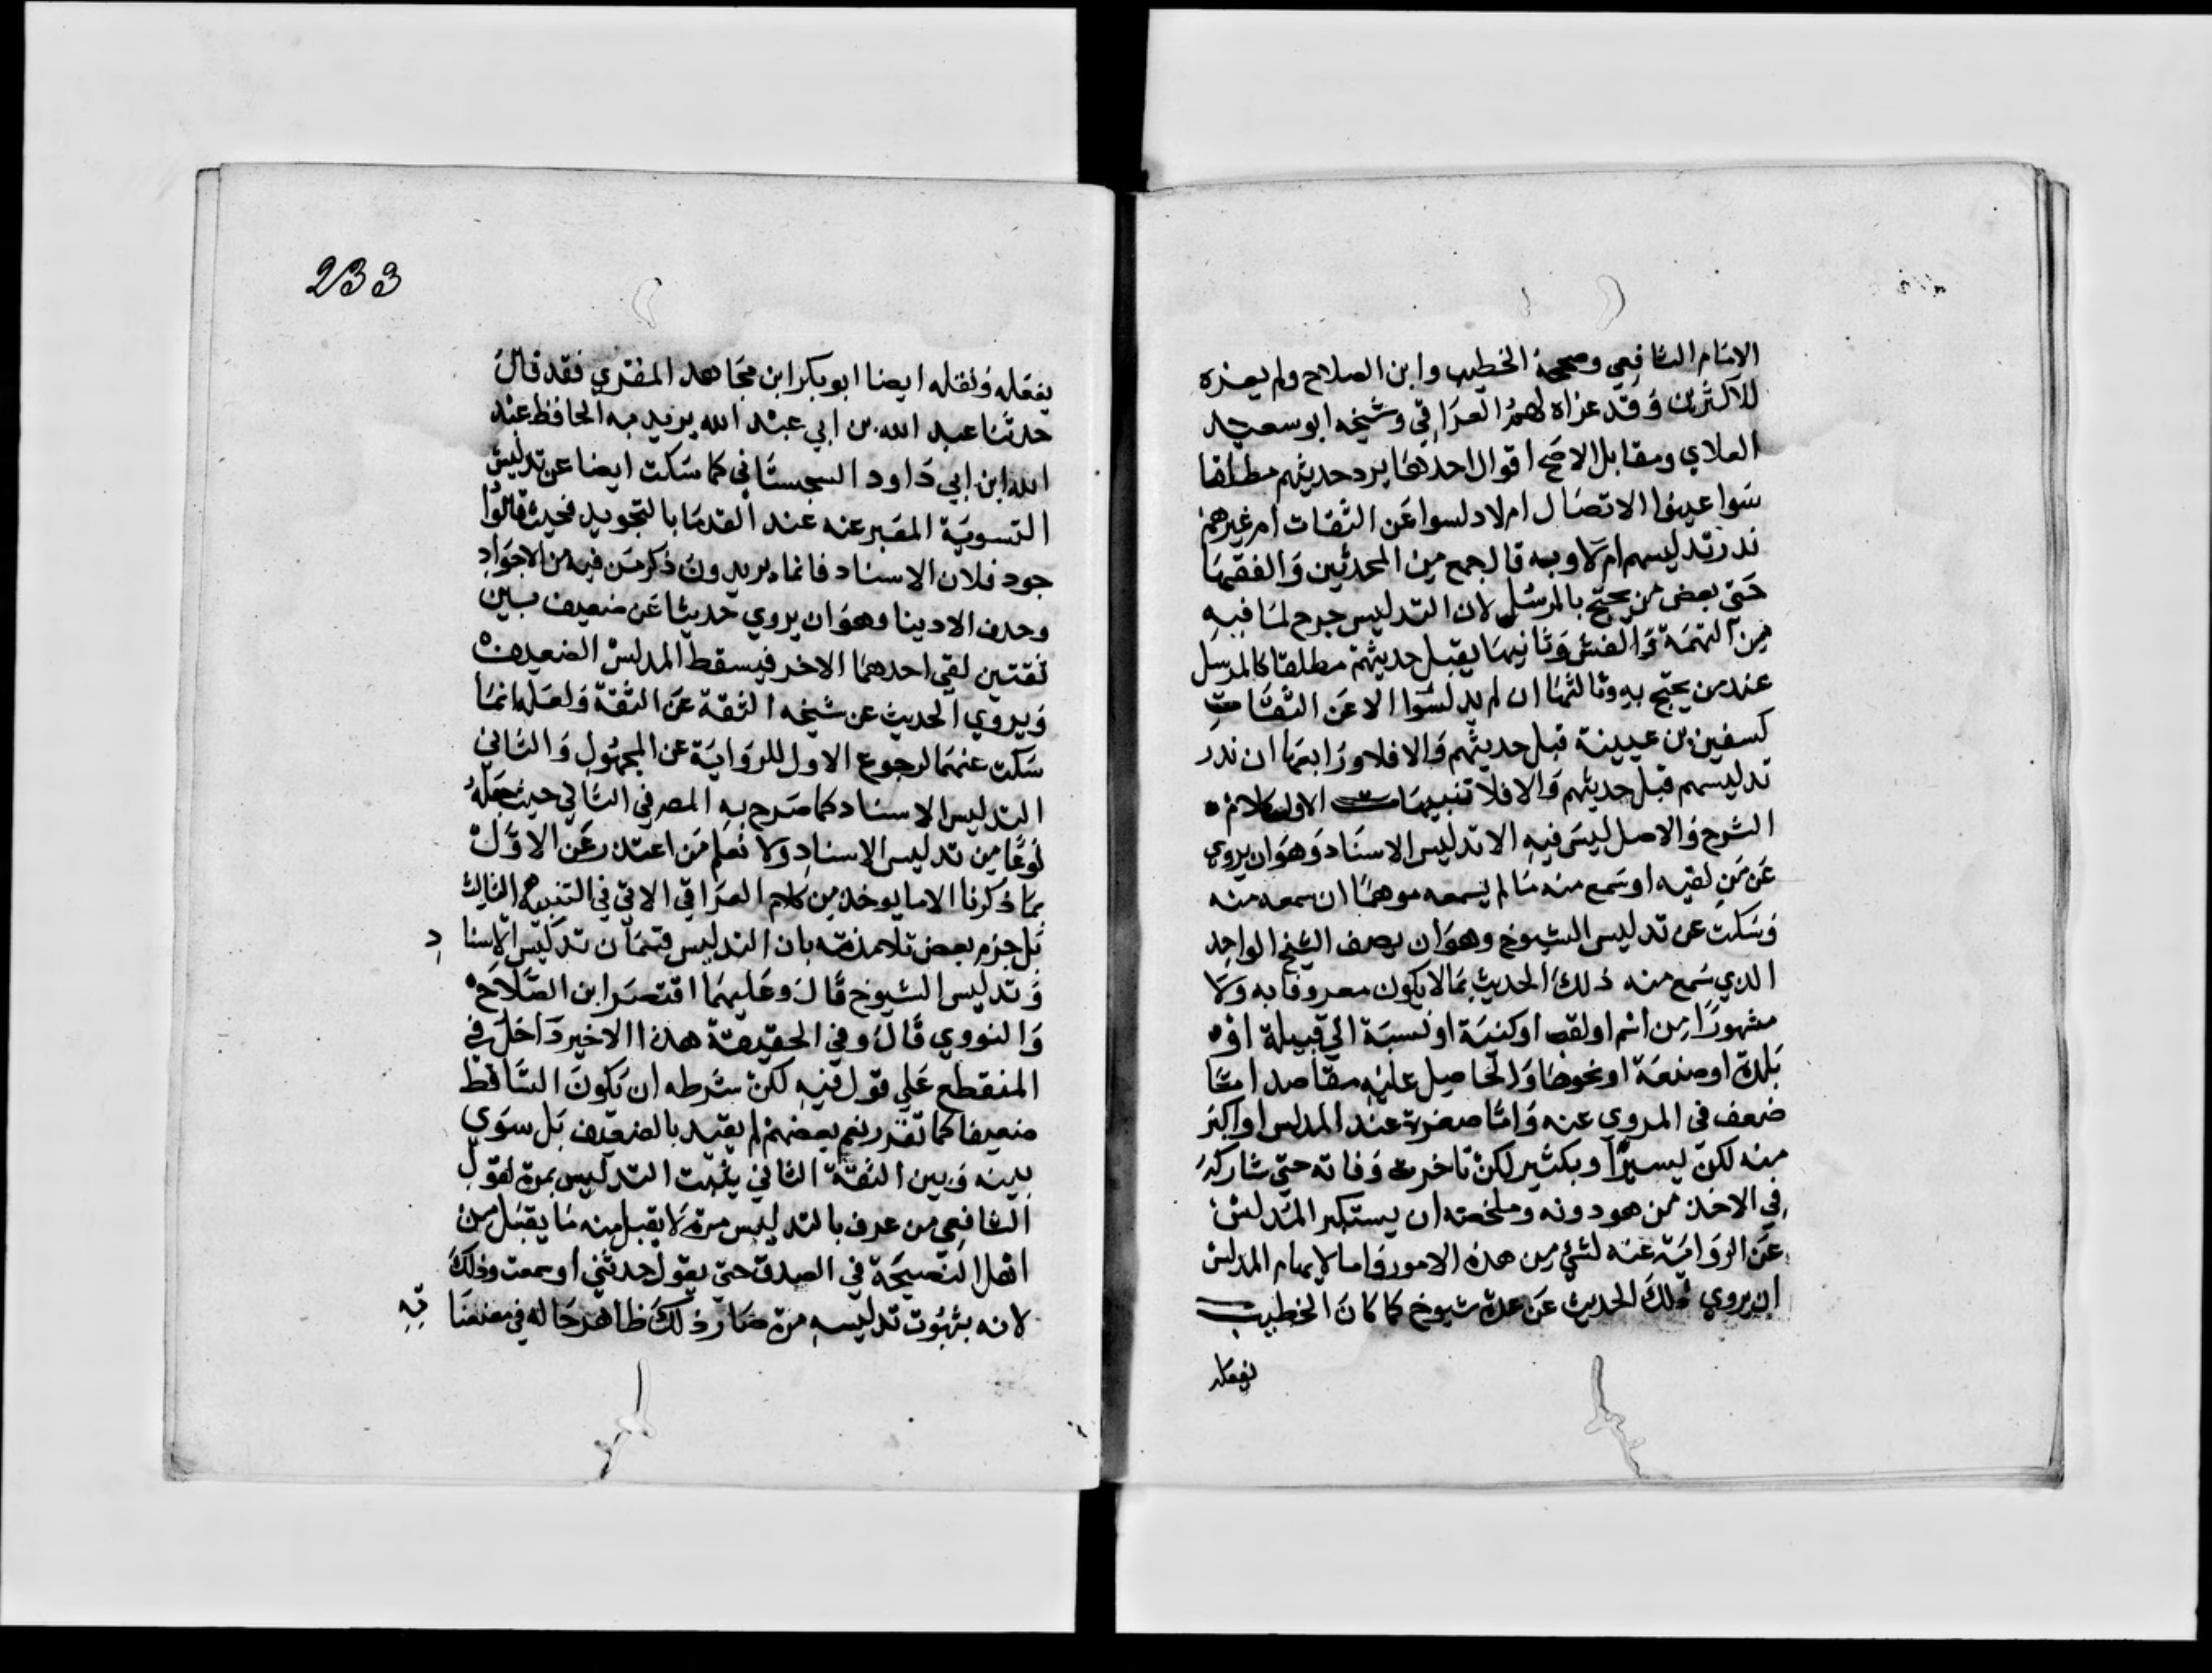 الامام الشافعي وصححه الخطيب وابن الصلاح ولم يعزه
للاكثرين وقد عزاه لهم العراقي وشيخه ابو سعيد
العلاي ومقابل الاصح اقوال احدها يرد حديثهم مطلقا
سوا عينوا الاتصال ام لا دلسوا عن الثقات ام غيرهم
ندر تدليسهم ام لا وبه قال جمع من المحدثين والفقها
حتى بعض من يحتج بالمرسل لان التدليس جرح لما فيه
من التهمة والغش وثانيها يقبل حديثهم مطلقا كالمرسل
عند من يحتج به وثالثها ان لم يدلسوا الا عن الثقات
كسفين بن عيينة قبل حديثهم والا فلا ورابعها ان ندر
تدليسهم قبل حديثهم والا فلا تنبيهات الاول كلام
الشرح والاصل ليس فيه الا تدليس الاسناد وهو ان يروي
عن من لقيه او سمع منه ما لم يسمعه موهما ان سمعه منه
وسكت عن تدليس الشيوخ وهو ان يصف الشيخ الواحد
الذي سمع منه ذلك الحديث بما لا يكون معروفا به ولا
مشهورا من اسم او لقب او كنية او نسبة الي قبيلة او
بلدة او صنعة او نحوها والحاصل عليه مقاصد اما
ضعف في المروي عنه واما صغره عند المدلس او اكبر
منه لكن يسيرا وبكثير لكن تاخرت وفاته حتي شاركه
في الاخذ من هو دونه وملخصه ان يستكبر المدلس
عن الرواية عنه لشي من هذه الامور واما لايهام المدلس
ان يروي ذلك الحديث عن عدة شيوخ كما كان الخطيب
يفعله
233
يفعله ونقله ايضا ابو بكر ابن مجاهد المقري فقد قال
حدثنا عبد الله بن ابي عبد الله يريد به الحافظ عبد
الله ابن ابي داود السجستاني كما سكت ايضا عن تدليس
التسوية المعبر عنه عند القدما بالتجويد فحيث قالوا
جود فلان الاسناد فانما يريدون ذكر من فيه من الاجواد
وحذف الادينا وهو ان يروي حديثا عن ضعيف بين
ثقتين لقي احدهما الاخر فيسقط المدلس الضعيف
ويروي الحديث عن شيخه الثقة عن الثقة ولعله انما
سكت عنهما لرجوع الاول للرواية عن المجهول والثاني
التدليس الاسناد كما صرح به المص في الثاني حيث جعله
نوعا من تدليس الاسناد ولا نعلم من اعتذر عن الاول
بما ذكرنا الا ما يوخذ من كلام العراقي الاتي في التنبيه الثالث
بل جزم بعض تلامذته بان التدليس قسمان تدليس الاسناد
وتدليس الشيوخ قال وعليهما اقتصر ابن الصلاح
والنووي قال وفي الحقيقة هذا الاخير داخل في
المنقطع علي قول فيه لكن شرطه ان يكون الساقط
ضعيفا كما تقرر نعم بعضهم لم يقيد بالضعيف بل سوي
بينه وبين الثقة الثاني يثبت التدليس بمرة لقول
الشافعي من عرف بالتدليس مرة لا يقبل منه ما يقبل من
اهل النصيحة في الصدق حتي يقول حدثني او سمعت وذلك
لانه بثبوت تدليسه مرة صار ذلك ظاهر حاله في معنعناته